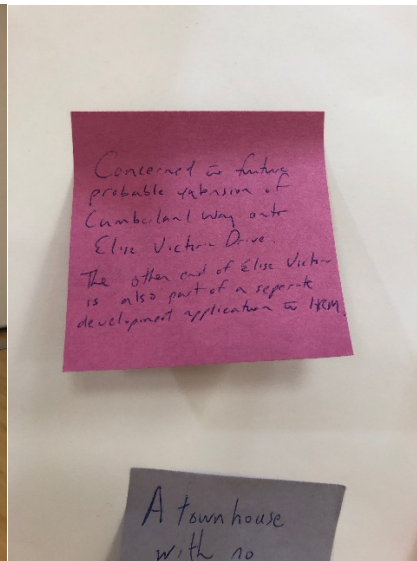 Concerned w future
probable extension of
Cumberland Way onto
Elise Victoria Drive.
The other end of Elise Victoria
is also part of a seperate
development application w HRM.
A townhouse
with no